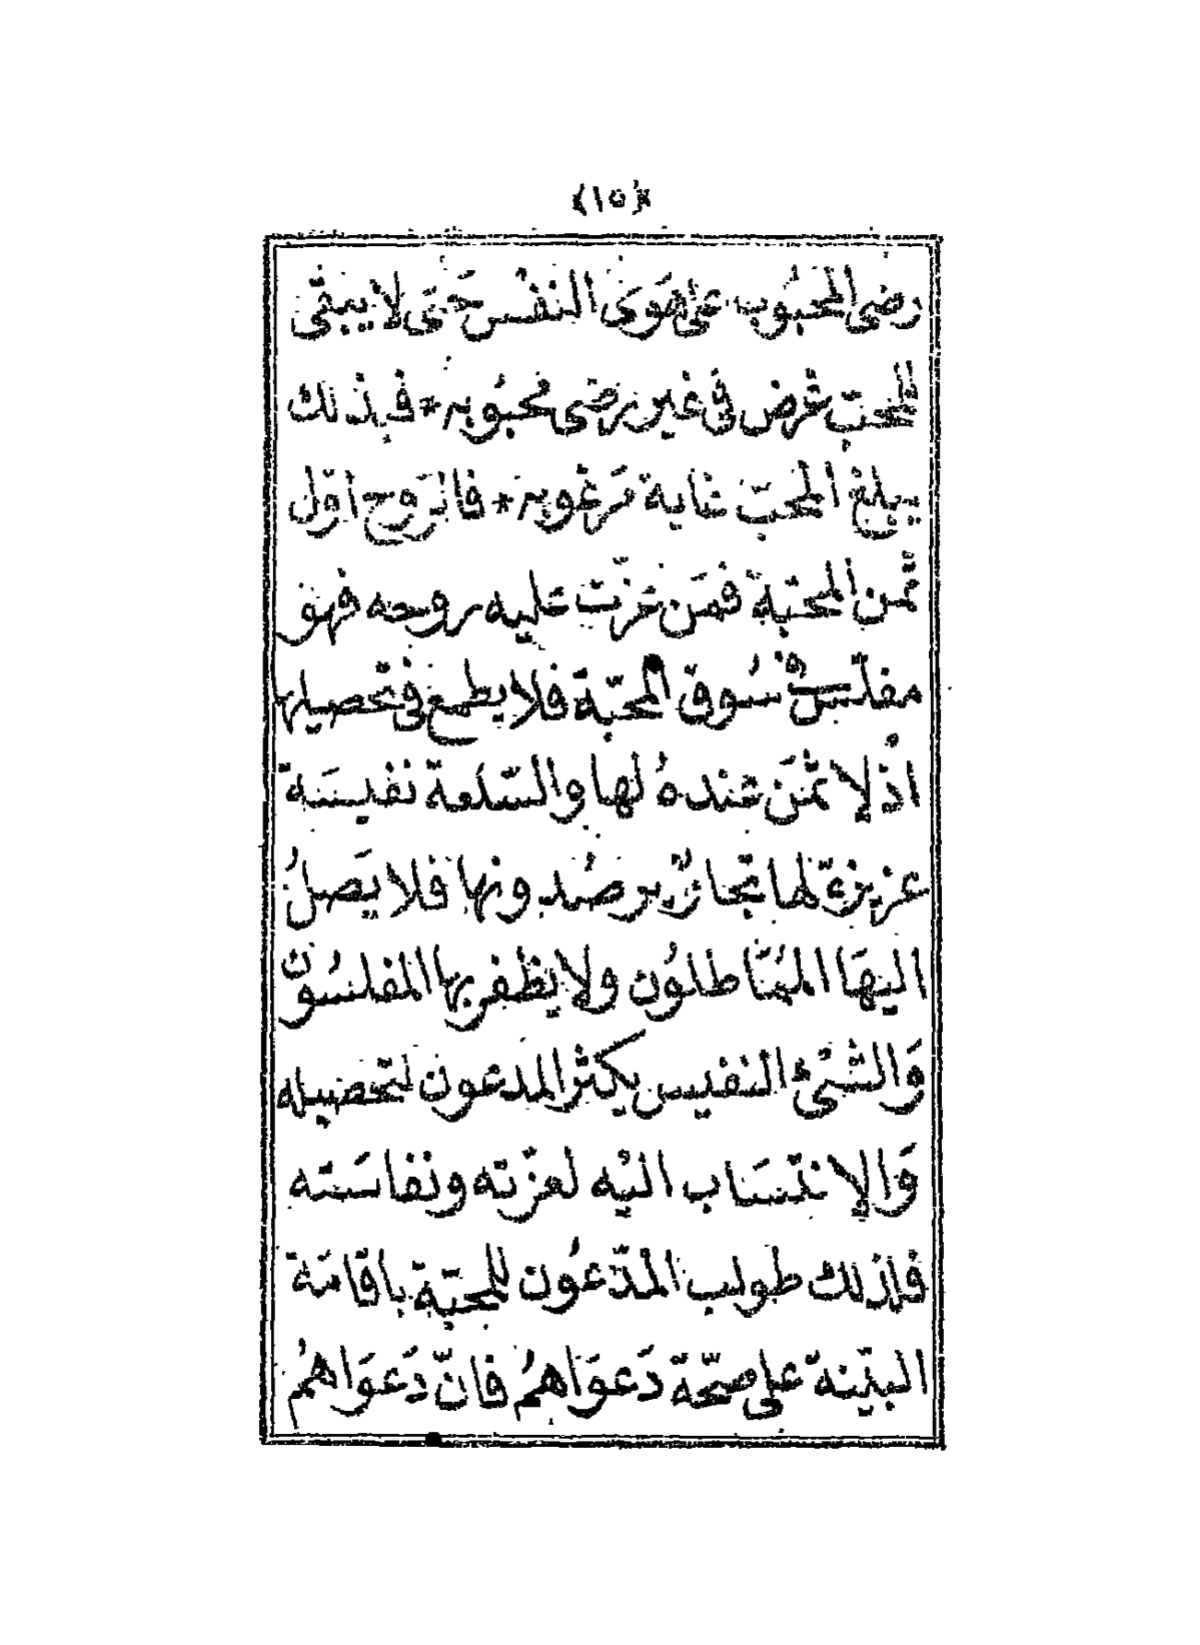 ﴿١٥﴾
رضى المحبُوب على هَوَى النفْس حَتى لا يبقى
للمحبّ غرض فى غير رضى محبُوبه * فبذلك
يبلغ المحبّ غاية مَرغوبه * فالرَوح اوّل
ثمّن المحبّة فمَن عزّت عليه روحه فهو
مفلسٌ فى سُوق المحبّة فلا يطمع فى تحصيلها
اذْ لا ثمَن عندهُ لها والسّلعة نفيسَة
عزيزة لها تجارٌ يرصُدونها فلا يَصلُ
اليهَا البَطّالُون ولا يظفر بها المفلسُون
وَالشَئ النفيس يكثر المدعون لتحصيله
وَالانتسَاب اليْه لعزّته ونفاسَته
فلذلك طولب المدّعُون للمحبّة باقامَة
البيّنة على صحّة دَعوَاهمُ فانّ دَعوَاهُم